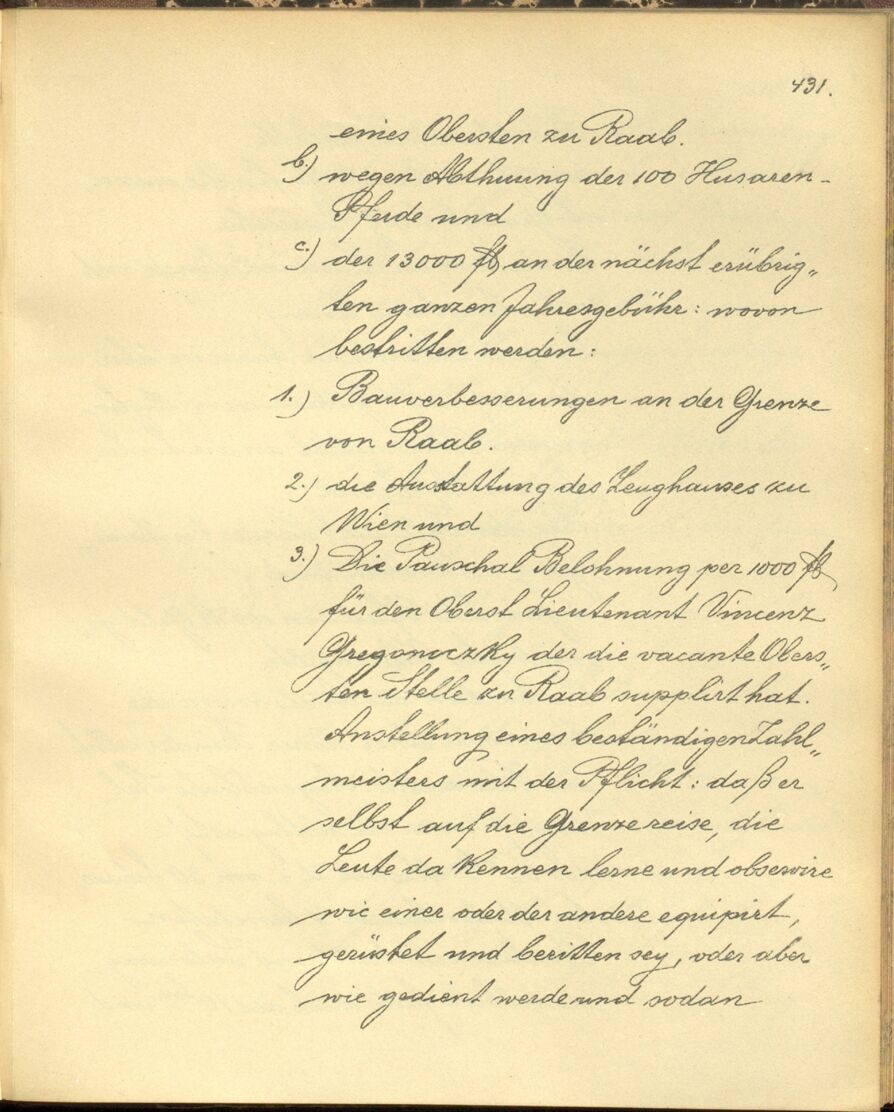 431.
eines Obersten zu Raab.
b.) wegen Abthuung der 100 Husaren-
Pferde und
c.) der 13000 fl, an der nächst erübrig„
ten ganzen Jahresgebühr: wovon
bestritten werden:
1.) Bauverbesserungen an der Grenze
von Raab.
2.) die Ausstattung des Zeughauses zu
Wien und
3.) Die Pauschal Belohnung per 1000 fl
für den Oberst Lieutenant Vincenz
der die vacante Obers„
ten Stelle zu Raab supplirt hat.
Anstellung eines beständigen Zahl„
meisters mit der Pflicht: daß er
selbst auf die Grenze reise, die
Leute da kennen lerne und observire
wie einer oder der andere equipirt,
gerüstet und beritten sey, oder aber
wie gedient werde und sodan